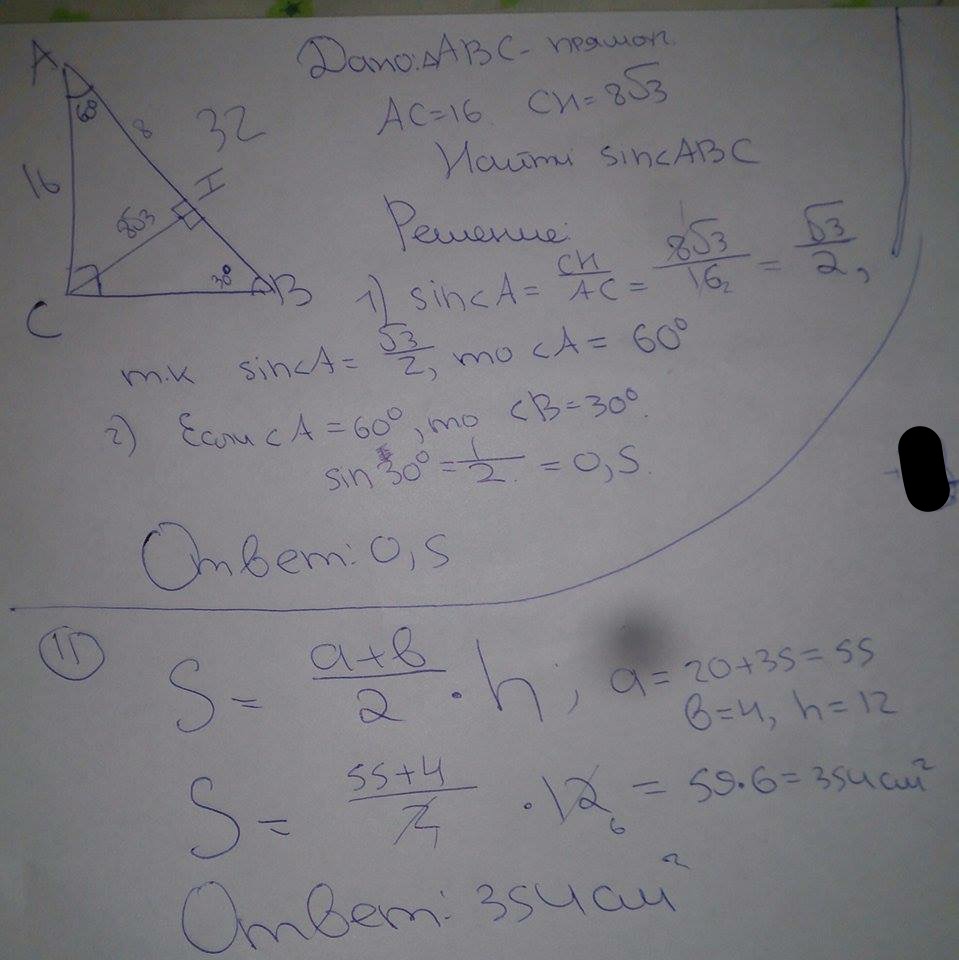 Дано: △ABC - прямоп.
AC=16 CH=8√3
Найти sin<ABC
Решение:
1) sin<A= CH/AC = 8√3/16 2 = √3/2,
т.к sin<A= √3/2, то <A= 60°
2) Если <A=60°, то <B=30°.
sin 30° = 1/2 = 0,5.
Ответ: 0,5
A
60
8
32
16
H
8√3
30°
C
B
11
S = a+b/2 · h; a= 20+35=55
b=4, h=12
S = 55+4/2 · 12 6 = 59·6=354см²
Ответ: 354см²